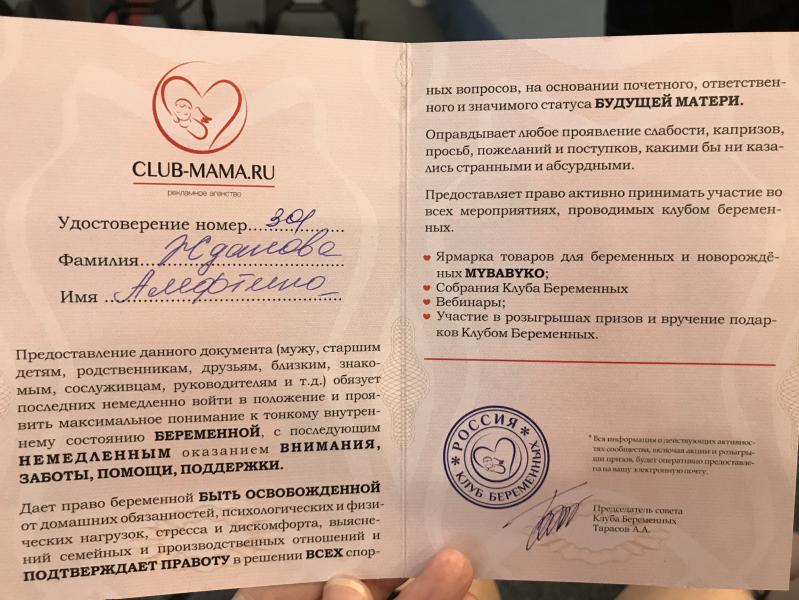 CLUB-MAMA.RU
рекламное агенство
Удостоверение номер...301
Фамилия...Жданова
Имя ...Алефтина
Предоставление данного документа (мужу, старшим
детям, родственникам, друзьям, близким, знако-
мым, сослуживцам, руководителям и т.д.) обязует
последних немедленно войти в положение и проя-
вить максимальное понимание к тонкому внутрен-
нему состоянию БЕРЕМЕННОЙ, с последующим
НЕМЕДЛЕННЫМ оказанием ВНИМАНИЯ,
ЗАБОТЫ, ПОМОЩИ, ПОДДЕРЖКИ.
Дает право беременной БЫТЬ ОСВОБОЖДЕННОЙ
от домашних обязанностей, психологических и физи-
ческих нагрузок, стресса и дискомфорта, выясне-
ний семейных и производственных отношений и
ПОДТВЕРЖДАЕТ ПРАВОТУ в решении ВСЕХ спор-
ных вопросов, на основании почетного, ответствен-
ного и значимого статуса БУДУЩЕЙ МАТЕРИ.
Оправдывает любое проявление слабости, капризов,
просьб, пожеланий и поступков, какими бы ни каза-
лись странными и абсурдными.
Предоставляет право активно принимать участие во
всех мероприятиях, проводимых клубом беремен-
ных.
Ярмарка товаров для беременных и новорождё-
нных MYBABYKO;
Собрания Клуба Беременных
Вебинары;
Участие в розыгрышах призов и вручение подар-
ков Клубом Беременных.
РОССИЯ
КЛУБ БЕРЕМЕННЫХ
* Вся информация о действующих активнос-
тях сообщества, включая акции и розыгры-
ши призов, будет оперативно предоставле-
на на вашу электронную почту.
Председатель совета
Клуба Беременных
Тарасов А.А.